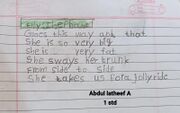 Elly the Phant
Goes this way and that
She is so very big
She is very fat
She sways her trunk
From side to side
She takes us for a jolly ride
Abdul latheef A
1 std